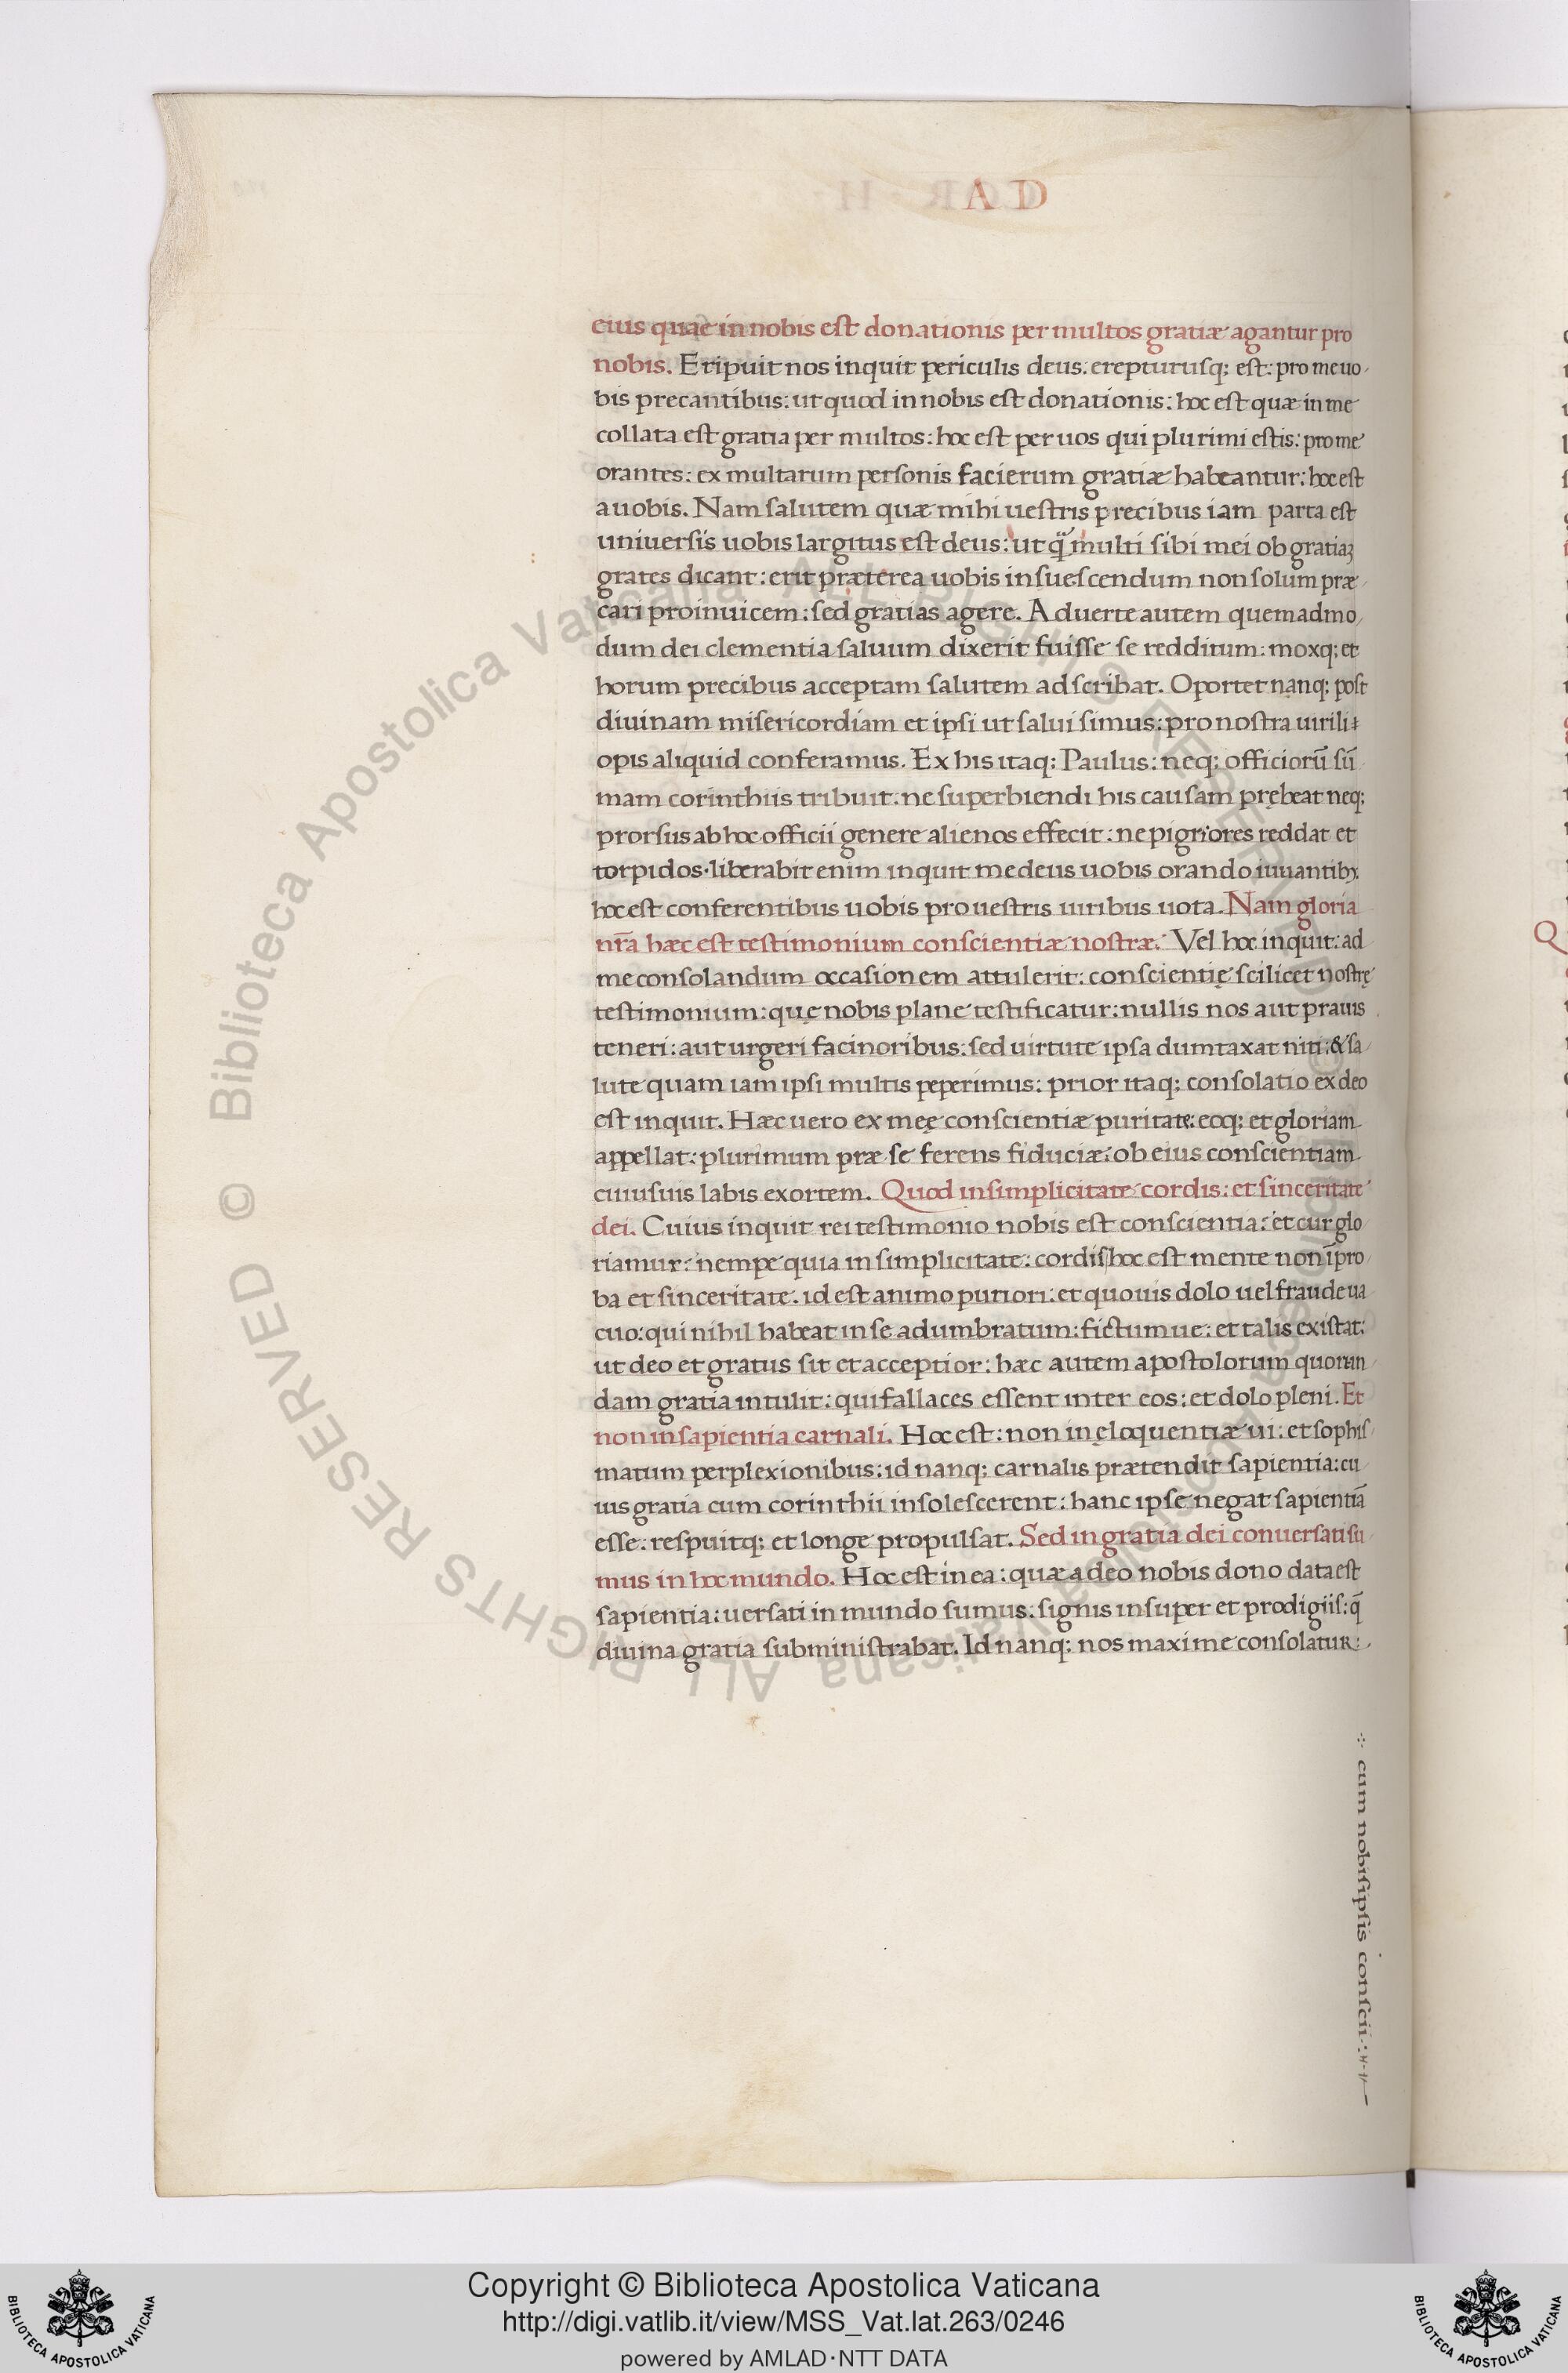 AD
eius quae in nobis est donationis per multos gratiæ agantur pro
nobis. Eripuit nos inquit periculis deus: erepturusq; est: pro me uo
bis precantibus: ut quod in nobis est donationis: hoc est quæ in me
collata est gratia per multos: hoc est per uos qui plurimi estis: pro me
orantes: ex multarum personis facierum gratiæ habeantur: hoc est
a uobis. Nam salutem quæ mihi uestris precibus iam parta est
uniuersis uobis largitus est deus: ut q̃ multi sibi mei ob gratiaꝫ
grates dicant: erit præterea uobis insuescendum non solum præ
cari pro inuicem: sed gratias agere. Aduerte autem quemadmo
dum dei clementia saluum dixerit fuisse se redditum: moxq; et
horum precibus acceptam salutem adscribat. Oportet nanq; post
diuinam misericordiam et ipsi ut salui simus: pro nostra uirili
opis aliquid conferamus. Ex his itaq; Paulus: neq; officiorū sū
mam corinthiis tribuit: ne superbiendi his causam prębeat neq;
prorsus ab hoc officii genere alienos effecit: ne pigriores reddat et
torpidos. liberabit enim inquit me deus uobis orando iuuantibꝫ
hoc est conferentibus uobis pro uestris uiribus uota. Nam gloria
nr̃a hæc est testimonium conscientiæ nostræ. Vel hoc inquit: ad
me consolandum occasionem attulerit: conscientię scilicet nostrę
testimonium: quę nobis plane testificatur: nullis nos aut prauis
teneri: aut urgeri facinoribus: sed uirtute ipsa dumtaxat niti: & sa
lute quam iam ipsi multis peperimus: prior itaq; consolatio ex deo
est inquit. Hæc uero ex meę conscientiæ puritate: eoq; et gloriam
appellat: plurimum præ se ferens fiduciæ: ob eius conscientiam
cuiusuis labis exortem. Quod in simplicitate cordis: et sinceritate
dei. Cuius inquit rei testimonio nobis est conscientia: et cur glo
riamur: nempe quia in simplicitate: cordis hoc est mente non ĩpro
ba et sinceritate. id est animo puriori: et quouis dolo uel fraude ua
cuo: qui nihil habeat in se adumbratum: fictumue: et talis existat:
ut deo et gratus sit et acceptior: hæc autem apostolorum quorun
dam gratia intulit: qui fallaces essent inter eos: et dolo pleni. Et
non in sapientia carnali. Hoc est: non in ęloquentiæ ui: et sophis
matum perplexionibus: id nanq; carnalis prætendit sapientia: cu
ius gratia cum corinthii insolescerent: hanc ipse negat sapientiã
esse: respuitq; et longe propulsat. Sed in gratia dei conuersati su
mus in hoc mundo. Hoc est in ea: quæ a deo nobis dono data est
sapientia: uersati in mundo sumus: signis insuper et prodigiis: q̃
diuina gratia subministrabat. Id nanq; nos maxime consolatur:
cum nobisipsis conscii
© Biblioteca Apostolica Vaticana ALL RIGHTS RESERVED
© Biblioteca Apostolica Vaticana ALL RIGHTS RESERVED
Copyright © Biblioteca Apostolica Vaticana
http://digi.vatlib.it/view/MSS_Vat.lat.263/0246
powered by AMLAD·NTT DATA
BIBLIOTECA APOSTOLICA VATICANA
BIBLIOTECA APOSTOLICA VATICANA